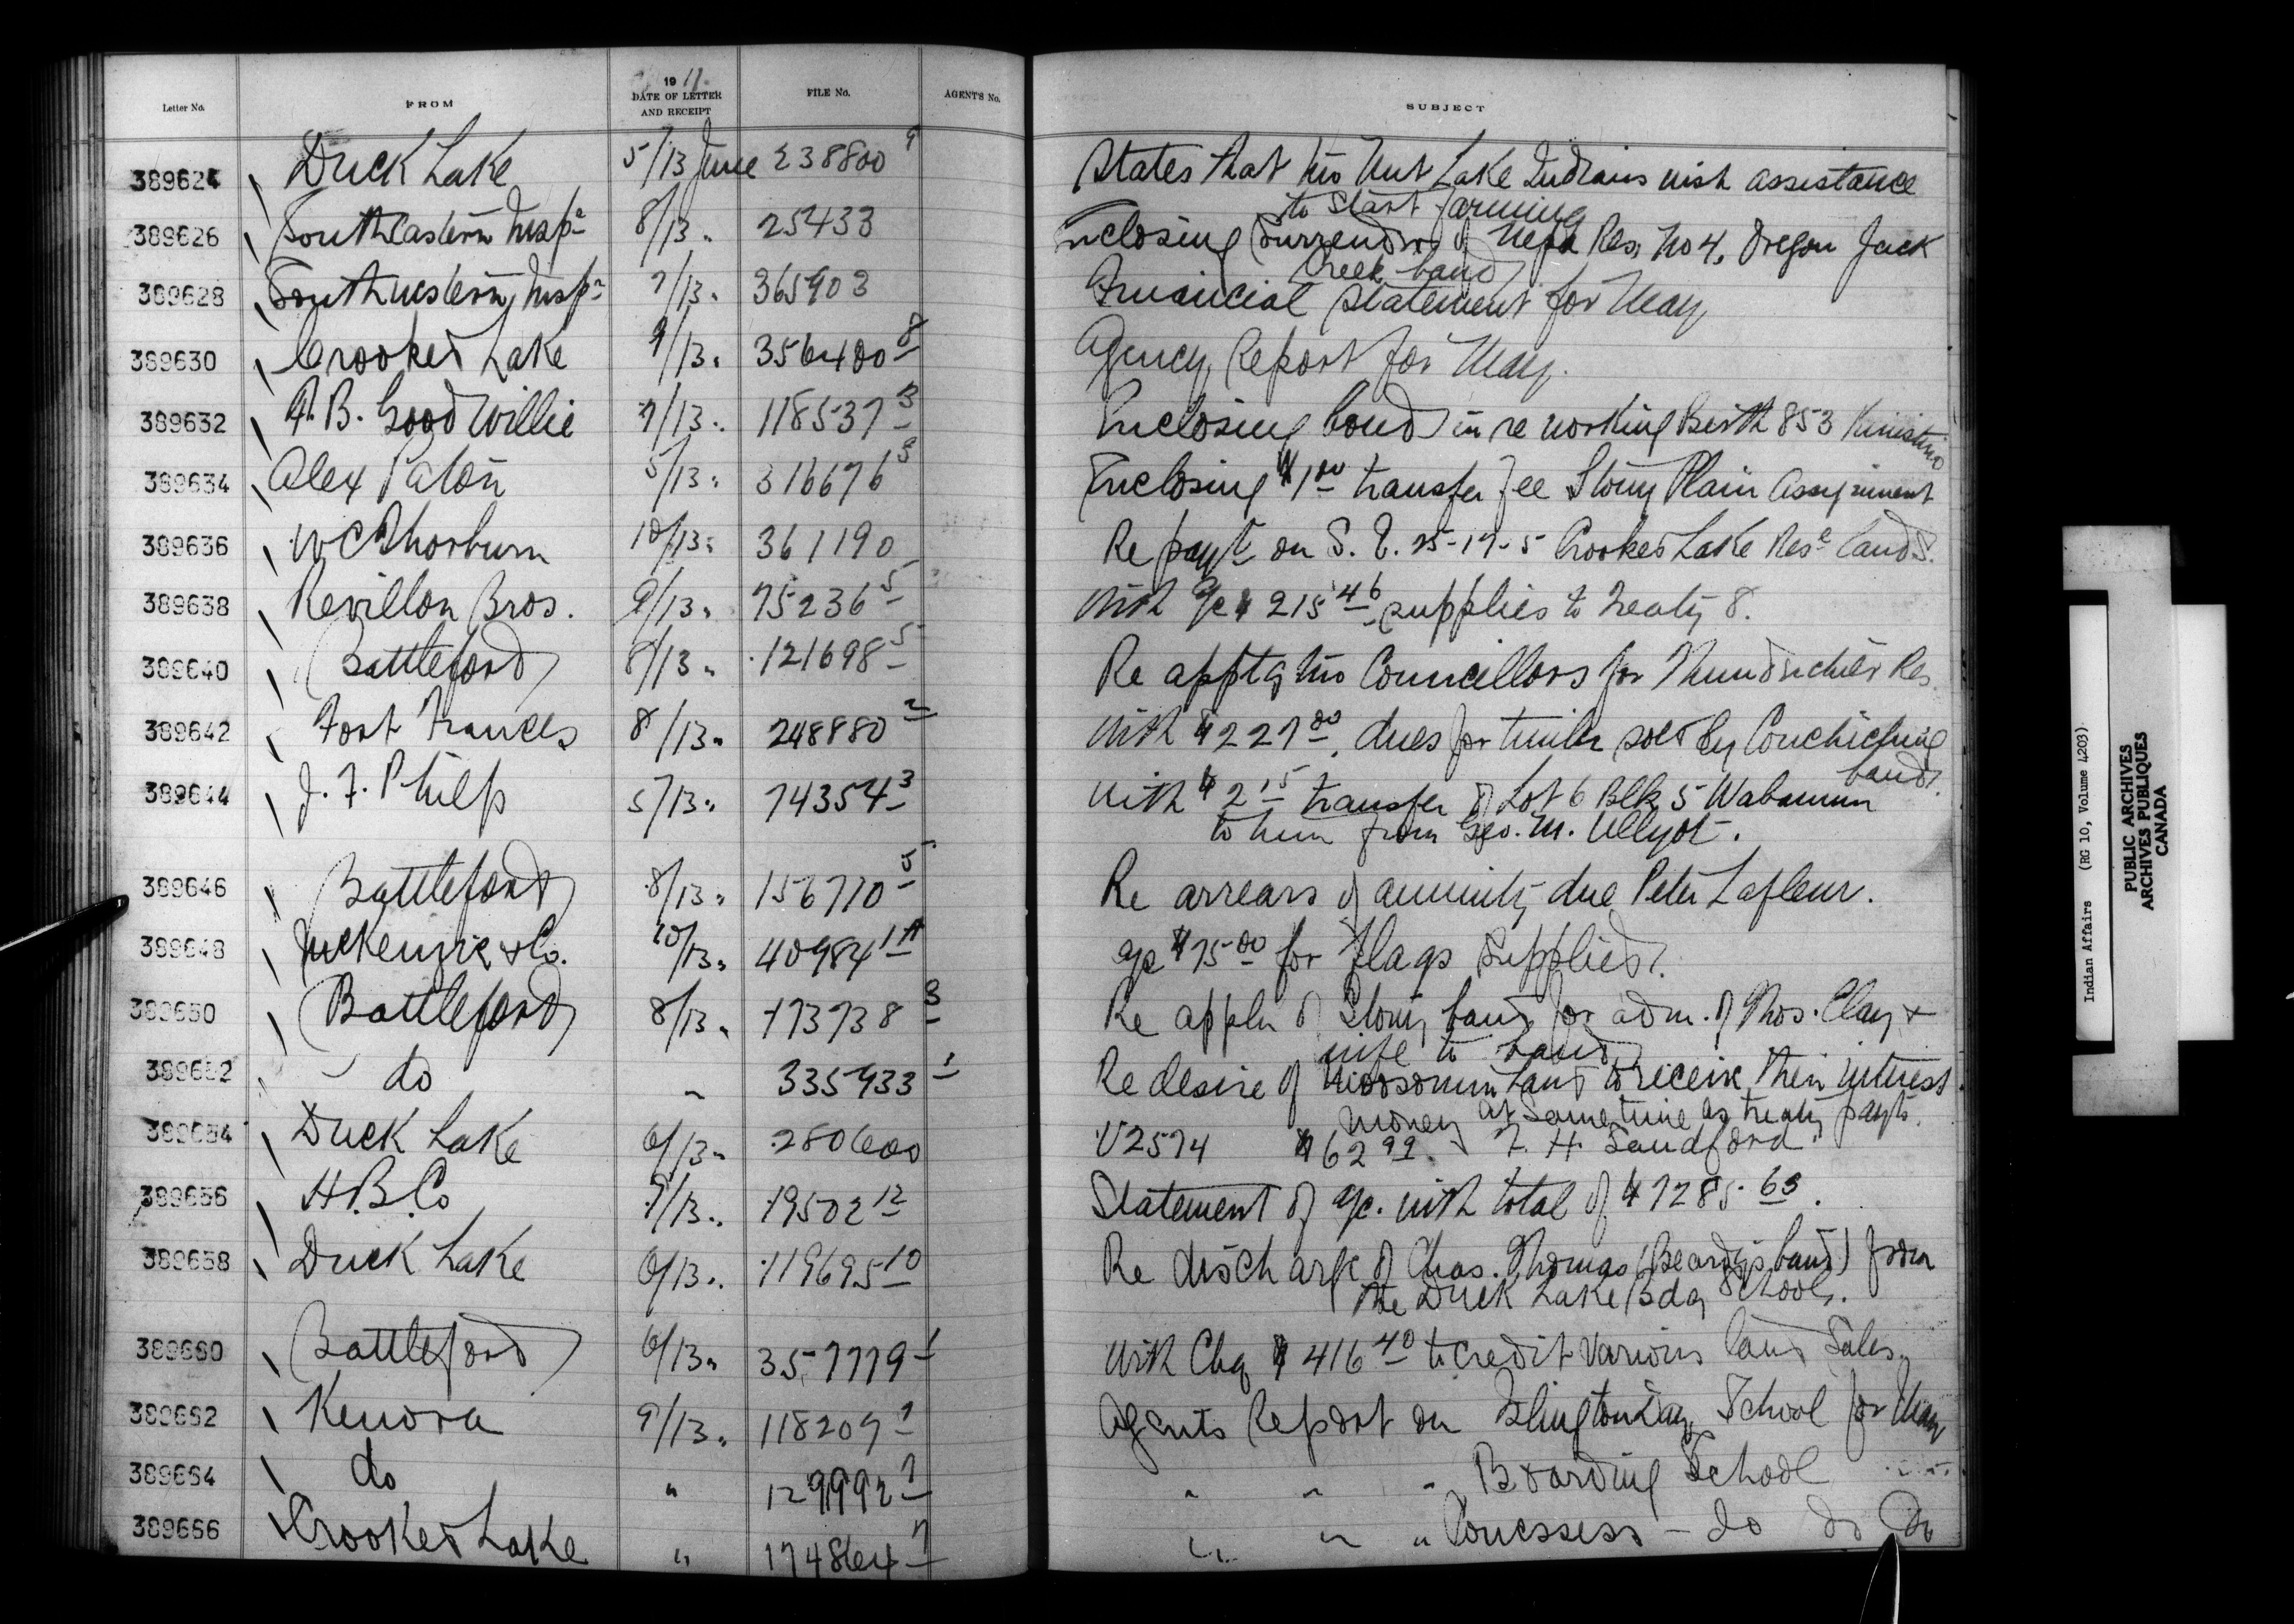 Letter No. FROM 1911 DATE OF LETTER AND RECEIPT FILE No. AGENT'S No. SUBJECT
389624 Duck Lake 5/13 June 238800 9 States that two Nut Lake Indians wish assistance
to start farming
389626 Southeastern Insp 8/13 " 25433 Enclosing Surrender of Nepa Res. No 4, Oregon Jack
Creek band
389628 Southwestern Insp 7/13 " 365903 Financial Statement for May
389630 Crooked Lake 9/13 " 356400 8 Agency Report for May.
389632 A. B. Goodwillie 7/13 " 118537 3 Enclosing bond in re working Berth 853 Kinistino
389634 Alex Paton 5/13 " 316676 3 Enclosing $1 00 transfer fee Stony Plain Assignment
389636 W C Thorburn 10/13 " 361190 Re payt on S. E. 25-17-5 Crooked Lake Rese lands.
389638 Revillon Bros. 9/13 " 75236 5 With a/c $215 46 supplies to Treaty 8.
389640 Battleford 8/13 " 121698 5 Re appt of two Councillors for Thunderchild's Res.
389642 Fort Frances 8/13 " 248880 2 With $227 00, dues for timber sold by Couchiching
band.
389644 J. F. Philp 5/13 " 74354 3 With $2 15 transfer of Lot 6 Blk 5 Wabamun
to him from Geo. M. Ullyot.
389646 Battleford 8/13 " 156710 5 Re arrears of annuity due Peter Lafleur.
389648 McKenzie & Co. 10/13 " 40984 1A a/c $75 00 for Flags Supplied.
389650 Battleford 8/13 " 173738 3 Re appln of Stony band for adm. of Thos. Clay &
wife to band
389652 do " 335933 1 Re desire of Moosomin band to receive their interest
money at same time as treaty payts.
389654 Duck Lake 6/13 " 280600 V2574 $62 99. F. H. Sandford
389656 H. B. Co 9/13 " 19502 12 Statement of a/c. with total of $7285 63.
389658 Duck Lake 6/13 " 119695 10 Re discharge of Chas. Thomas (Beardy's band) from
the Duck Lake Bdg School.
389660 Battleford 6/13 " 357779 1 With Chq $416 40 to credit various land Sales.
389662 Kenora 9/13 " 118209 1 Agents Report on Islington Day School for May
389664 do " 129992 1 " " " Boarding School " "
389666 Crooked Lake " 174864 7 " " " Cowessess - do do do
Indian Affairs (RG 10, Volume 4203)
PUBLIC ARCHIVES
ARCHIVES PUBLIQUES
CANADA